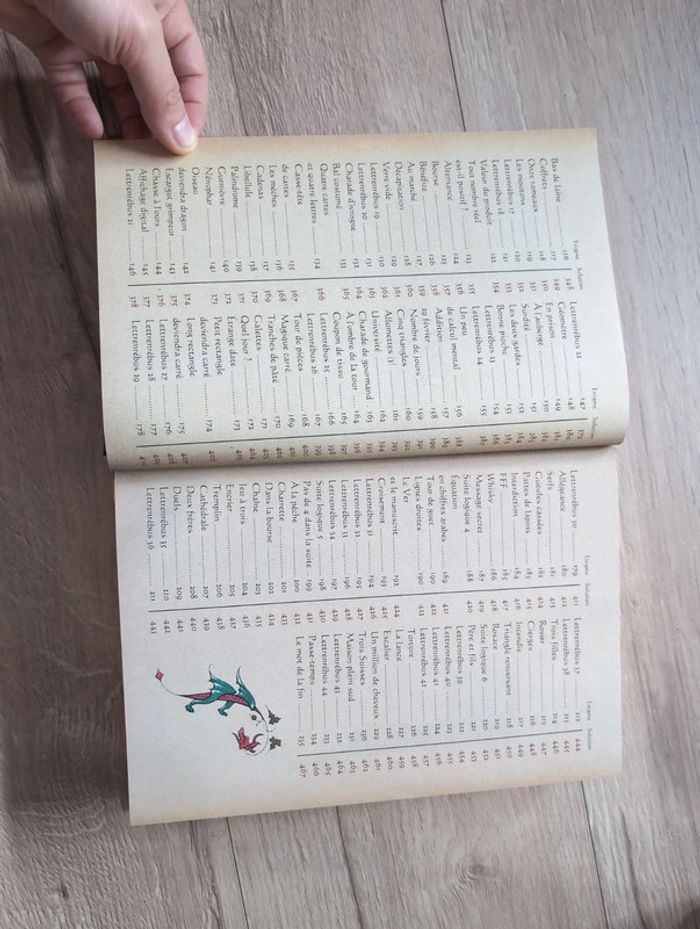 Énigme Solution
Bas de laine 116 348
Coffrets 117 349
Onze rameaux 118 350
Les moutons 119 351
Lettrenrébus 17 120 352
Lettrenrébus 18 121 353
Valeur du produit 122 354
Tout nombre réel
est-il positif ? 123 355
Alternance 124 356
Bourse 125 357
Bénéfice 126 358
Au marché 127 359
Décapitation 128 360
Verre vide 129 361
Lettrenrébus 19 130 362
Lettrenrébus 20 131 363
Charade d'ivrogne 132 364
Bal costumé 133 365
Quatre cartes
et quatre lettres 134 366
Casse-tête
de cartes 135 367
Les mèches 136 368
Cadenas 137 369
Libellule 138 370
Palindrome 139 371
Guenièvre 140 372
Nénuphar 141 373
Oiseau
deviendra dragon 142 374
Escargot grimpeur 143 375
Chasse à l'ours 144 376
Affichage digital 145 377
Lettrenrébus 21 146 378
Énigme Solution
Lettrenrébus 22 147 379
Géomètre 148 380
En prison 149 381
À l'auberge 150 382
Surdité 151 383
Les deux gardes 152 384
Bonne pioche 153 385
Lettrenrébus 23 154 386
Lettrenrébus 24 155 387
Un peu
de calcul mental 156 388
Addition 157 389
29 février 158 390
Nombre de jours 159 391
Cinq triangles 160 392
Allumettes 161 393
Université 162 394
Charade de gourmand 163 395
À l'ombre de la tour 164 396
Coupon de tissu 165 397
Lettrenrébus 25 166 398
Lettrenrébus 26 167 399
Tour de pièces 168 400
Magique carré 169 401
Tranches de pâté 170 402
Galettes 171 403
Quel jour ? 172 404
Étrange date 173 405
Petit rectangle
deviendra carré 174 406
Long rectangle
deviendra carré 175 407
Lettrenrébus 27 176 408
Lettrenrébus 28 177 409
Lettrenrébus 29 178 410
Énigme Solution
Lettrenrébus 30 179 411
Allégeance 180 412
Serfs 181 413
Gueules cassées 182 414
Pattes de lapins 183 415
Interdiction 184 416
FFF 185 417
Whisky 186 418
Message secret 187 419
Suite logique 4 188 420
Équation
en chiffres arabes 189 421
Tour de guet 190 422
Lignes droites 191 423
Le Ver
et le manuscrit 192 424
Croisement 193 425
Lettrenrébus 31 194 426
Lettrenrébus 32 195 427
Lettrenrébus 33 196 428
Lettrenrébus 34 197 429
Suite logique 5 198 430
Pas de 4 dans la suite 199 431
À la pêche 200 432
Charrette 201 433
Dans la bourse 202 434
Chaîne 203 435
Jeu à trois 204 436
Encrier 205 437
Tremplin 206 438
Cathédrale 207 439
Deux frères 208 440
Duels 209 441
Lettrenrébus 35 210 442
Lettrenrébus 36 211 443
Énigme Solution
Lettrenrébus 37 212 444
Lettrenrébus 38 213 445
Trois filles 214 446
Rosier 215 447
Cierges 216 448
Incendie 217 449
Triangle renversant 218 450
Rosace 219 451
Suite logique 6 220 452
Père et fils 221 453
Lettrenrébus 39 222 454
Lettrenrébus 40 223 455
Lettrenrébus 41 224 456
Lettrenrébus 42 225 457
Torture 226 458
La lance 227 459
Escalier 228 460
Un million de cheveux 229 461
Trois Suisses 230 462
Maison plein sud 231 463
Lettrenrébus 43 232 464
Lettrenrébus 44 233 465
Passe-temps 234 466
Le mot de la fin 235 467